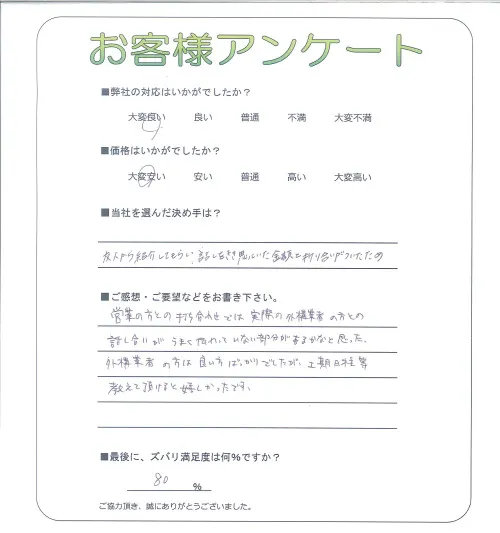 お客様アンケート
■弊社の対応はいかがでしたか？
大変良い 良い 普通 不満 大変不満
■価格はいかがでしたか？
大変安い 安い 普通 高い 大変高い
■当社を選んだ決め手は？
友人から紹介してもらい、話しを聞き思い 金額と折り合いがついたため
■ご感想・ご要望などをお書き下さい。
営業の方との打ち合わせでは実際の外構業者の方との
話し合いがうまく伝わっていない部分があるかなと思った。
外構業者の方は良い方ばっかりでしたが、工期日程等
教えて頂けると嬉しかったです。
■最後に、ズバリ満足度は何％ですか？
80 ％
ご協力頂き、誠にありがとうございました。